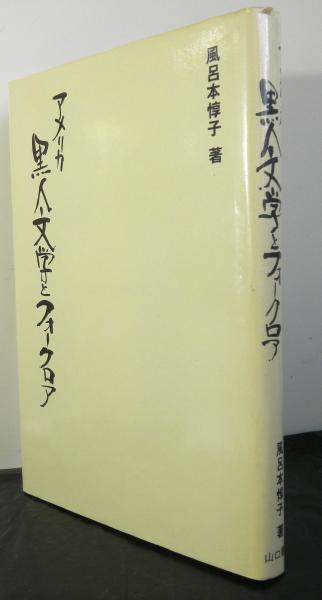 風呂本惇子 著
アメリカ
黒人文学とフォークロア
黒人文学とフォークロア
風呂本惇子 著
山口